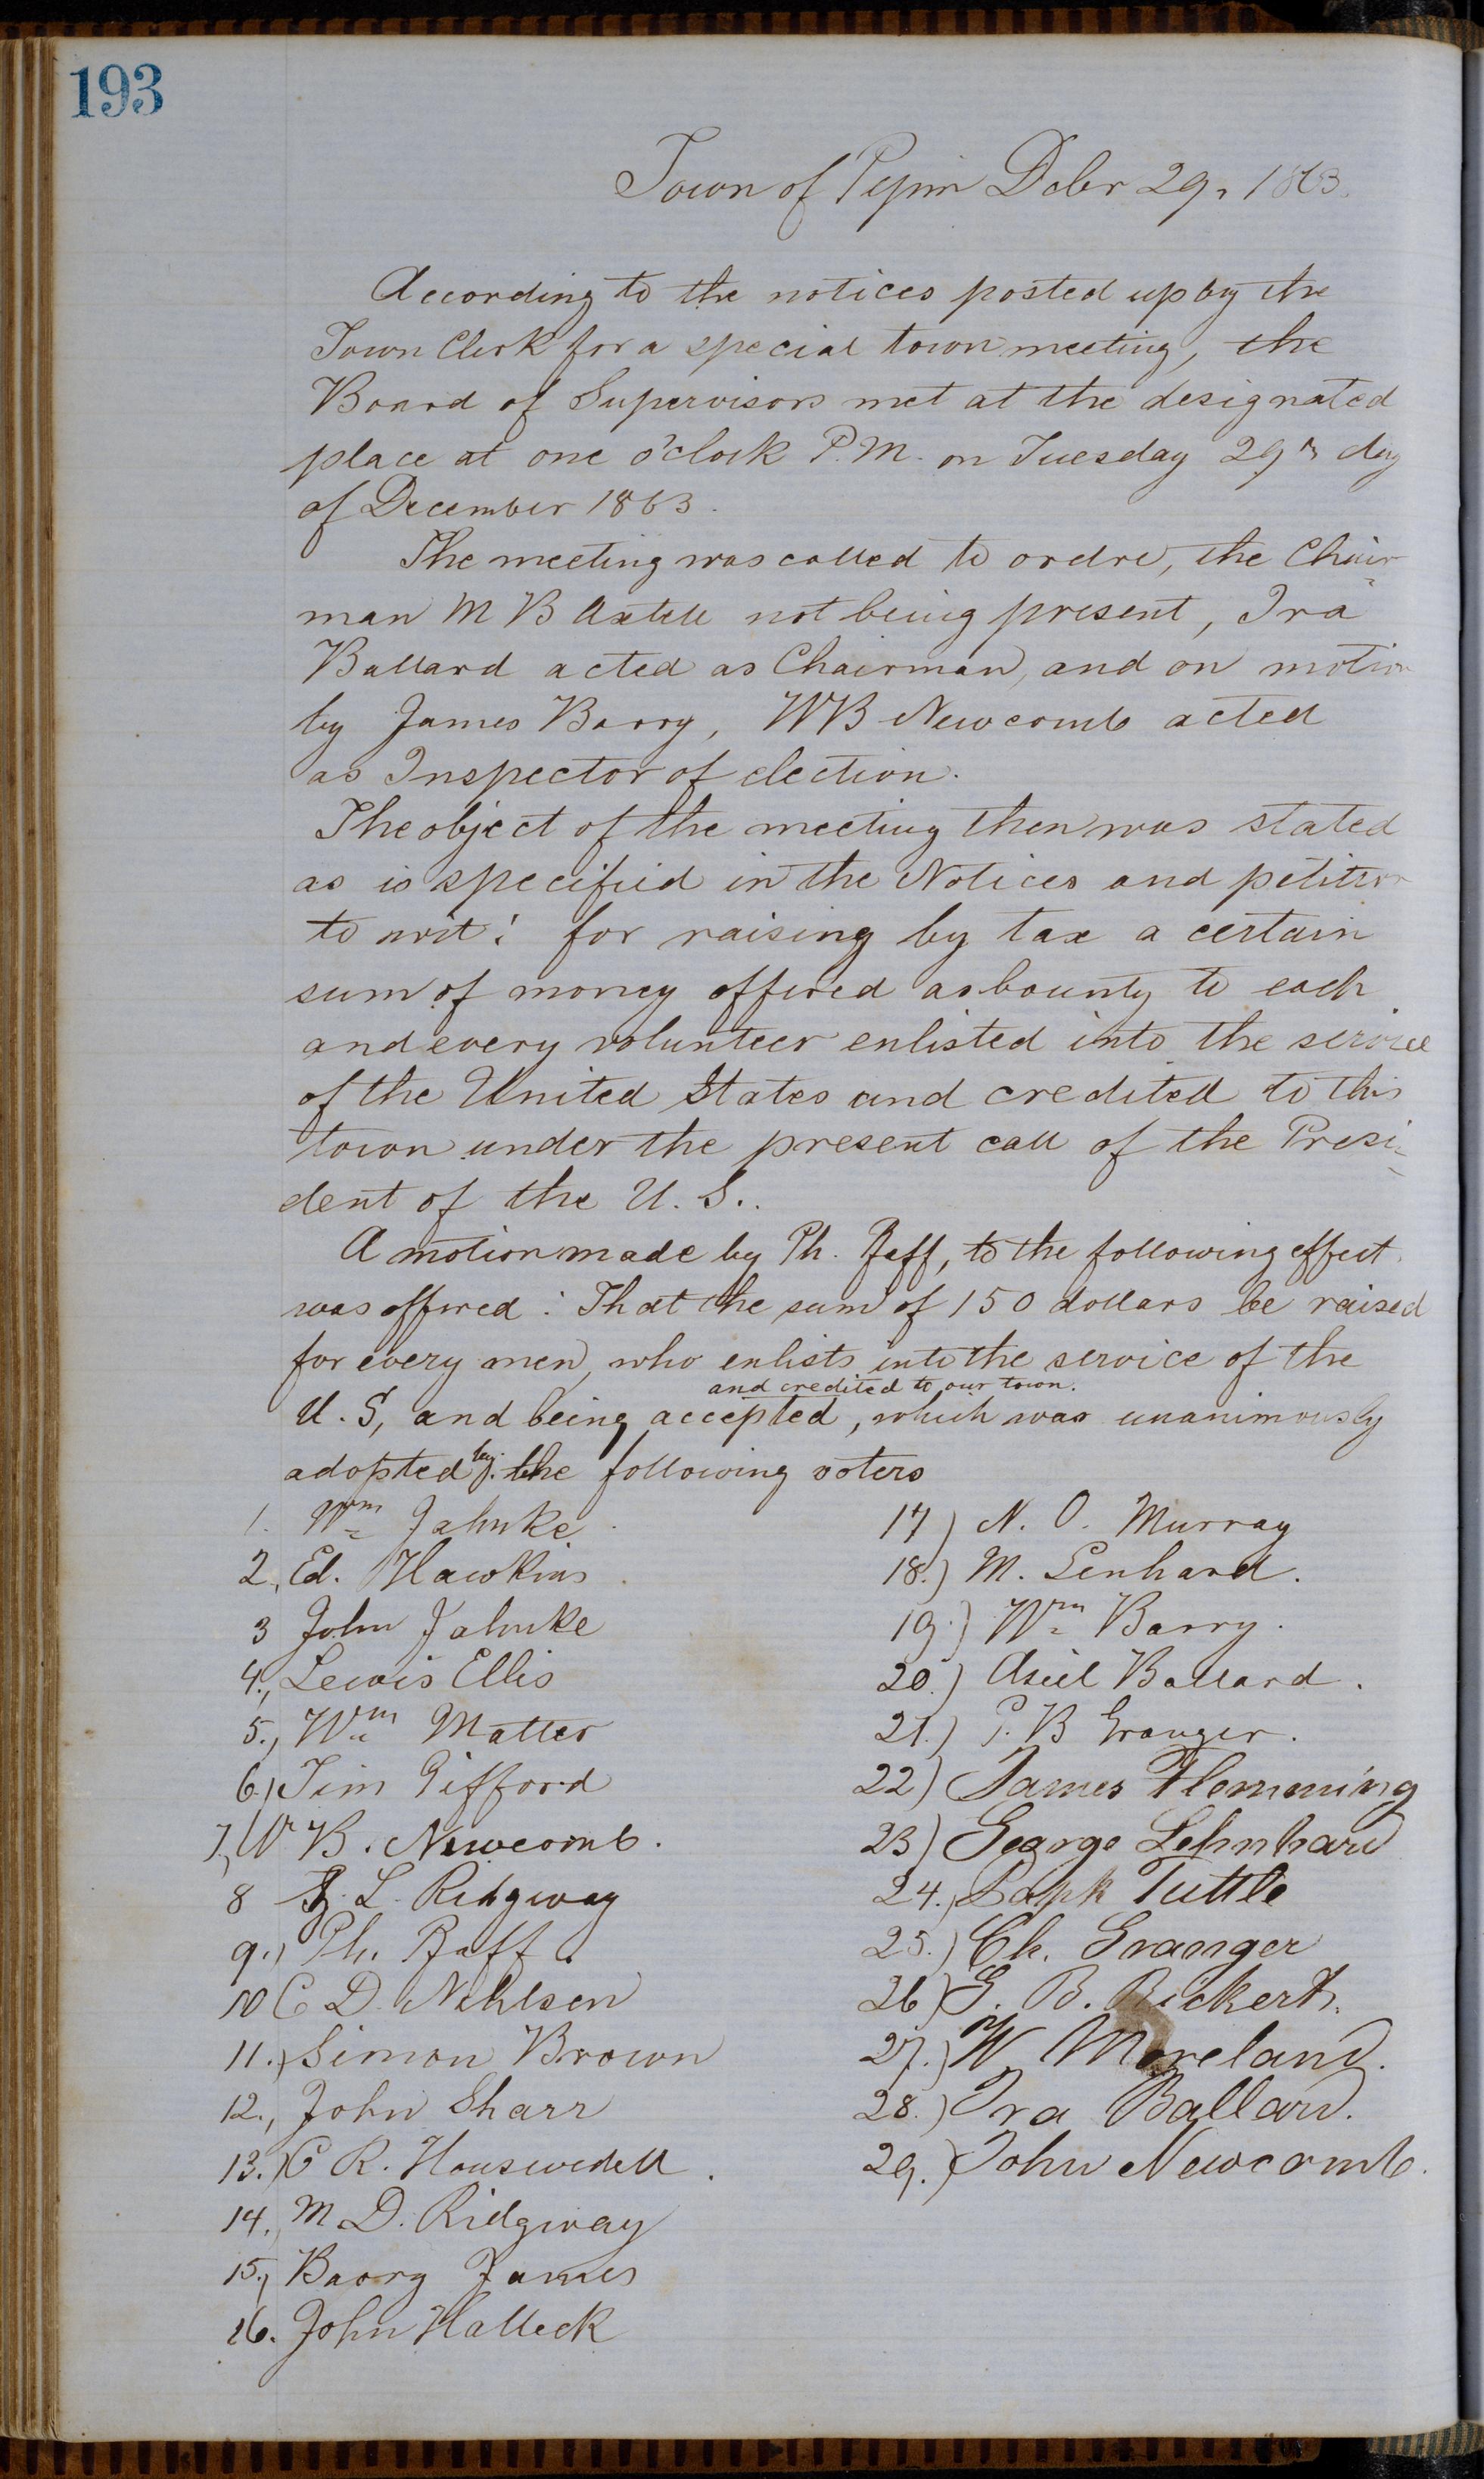 193
Town of Pepin Decbr 29, 1863.
According to the notices posted up by the
Town Clerk for a special town meeting, the
Board of Supervisors met at the designated
place at one o'clock P.M. on Tuesday 29th day
of December 1863.
The meeting was called to ordre, the Chair-
man M B Axtell not being present, Ira
Ballard acted as Chairman, and on motion
by James Barry, WB Newcomb acted
as Inspector of election.
The object of the meeting then was stated
as is specified in the Notices and petition
to wit: for raising by tax a certain
sum of money offered as bounty to each
and every volunteer enlisted into the service
of the United States and credited to this
town under the present call of the Presi-
dent of the U. S..
A motion made by Ph. Pfaff, to the following effect
was offered: That the sum of 150 dollars be raised
for every men, who enlists into the service of the
and credited to our town.
U. S, and being accepted, which was unanimously
adopted by the following voters
1. Wm Jahnke.
2., Ed. Hawkins.
3 John Jahnke
4., Lewis Ellis
5., Wm Matter
6.) Tim Gifford
7., W B. Newcomb.
8 L. Ridgway
9.) Ph. Pfaff.
10 C D. Nehlsen
11.) Simon Brown
12., John Sharr
13.) C R. Houswedell.
14., M. D. Ridgway
15., Baory James
16. John Halleck
17) N. O. Murray
18.) M. Lenhard.
19.) Wm Barry.
20.) Asiel Ballard.
21.) P. B Granger.
22) James Flemming
23) George Lehnhard
24.) Tuttle
25.) Ch. Granger
26) G. B. Rickert.
27.) W. Moreland.
28.) Ira Ballard.
29.) John Newcomb.